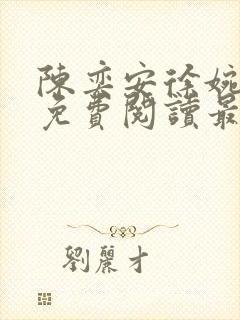 陳奕安徐婉
免費閱讀最
劉麗才